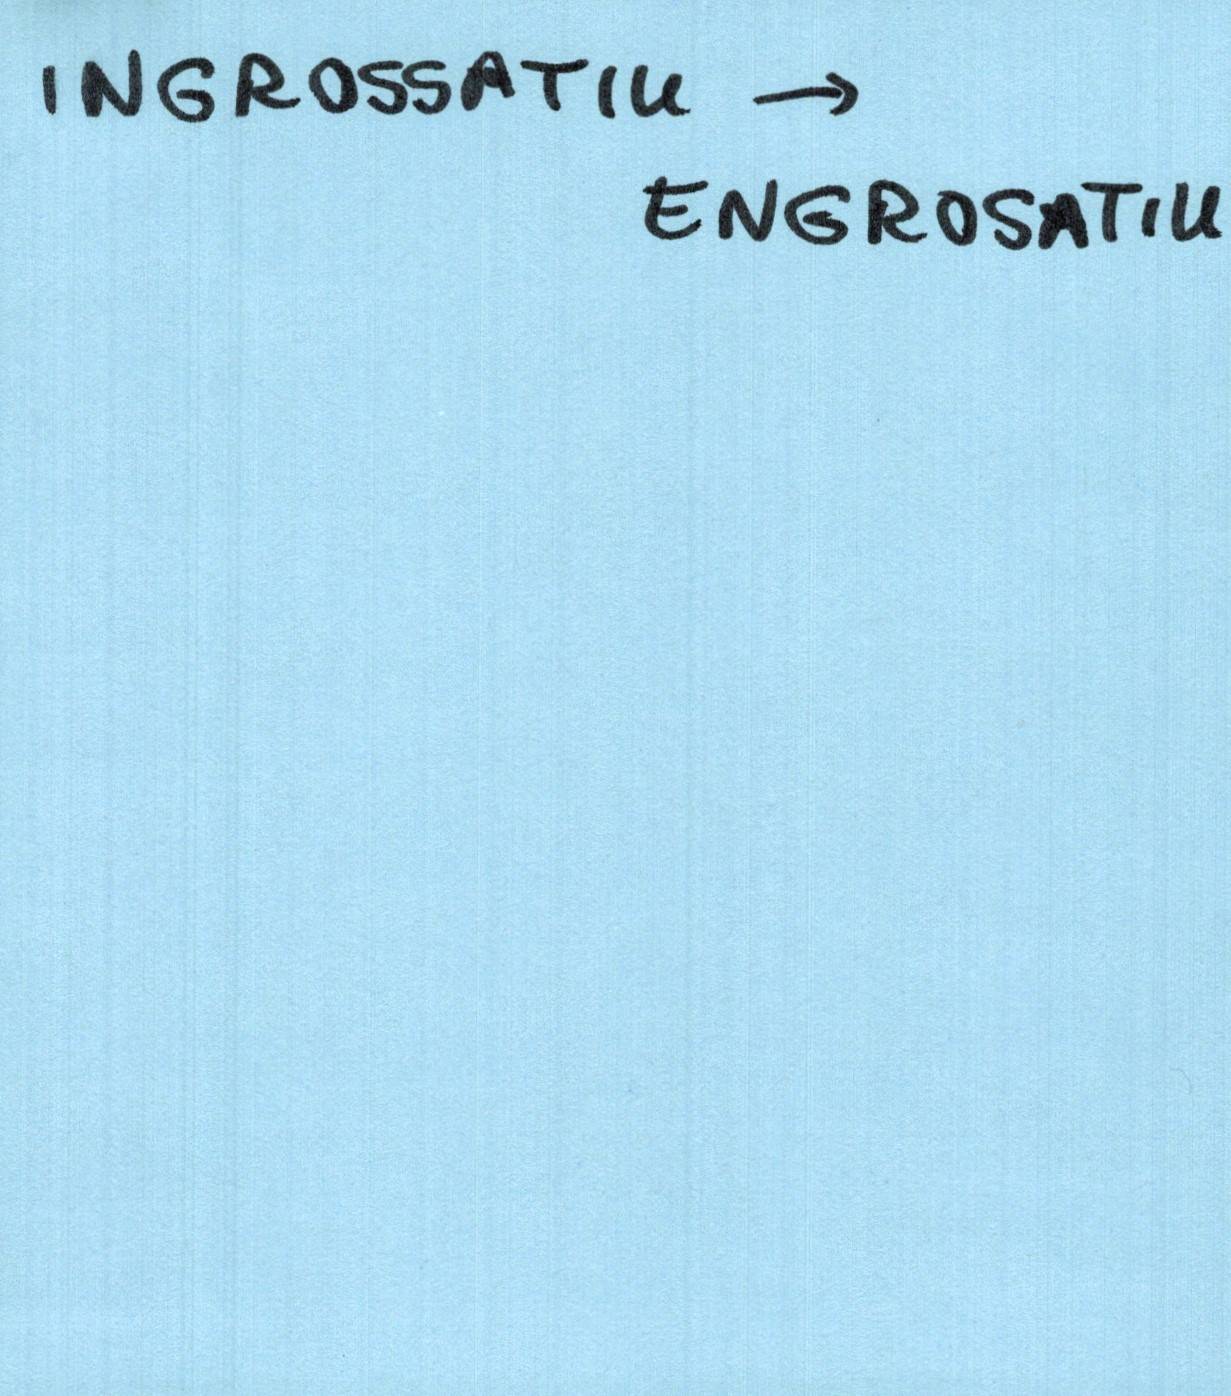 INGROSSATIU →
ENGROSATIU